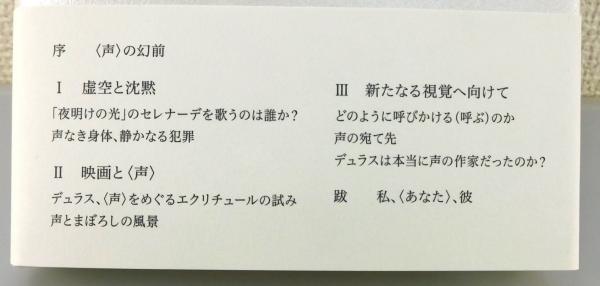 序　〈声〉の幻前
Ⅰ　虚空と沈黙
「夜明けの光」のセレナーデを歌うのは誰か？
声なき身体、静かなる犯罪
Ⅱ　映画と〈声〉
デュラス、〈声〉をめぐるエクリチュールの試み
声とまぼろしの風景
Ⅲ　新たなる視覚へ向けて
どのように呼びかける（呼ぶ）のか
声の宛て先
デュラスは本当に声の作家だったのか？
跋　私、〈あなた〉、彼